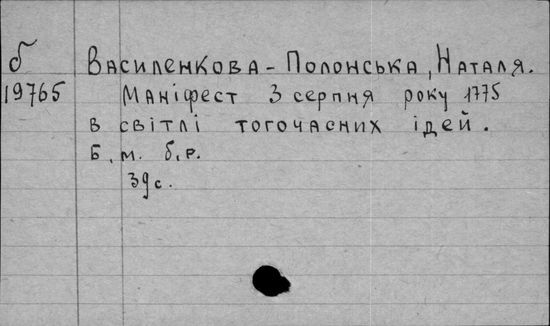 б
19765
Василенкова-Полонська, Наталя.
Маніфест 3 серпня року 1775
в світлі тогочасних ідей.
Б.м. б.р.
39 с.